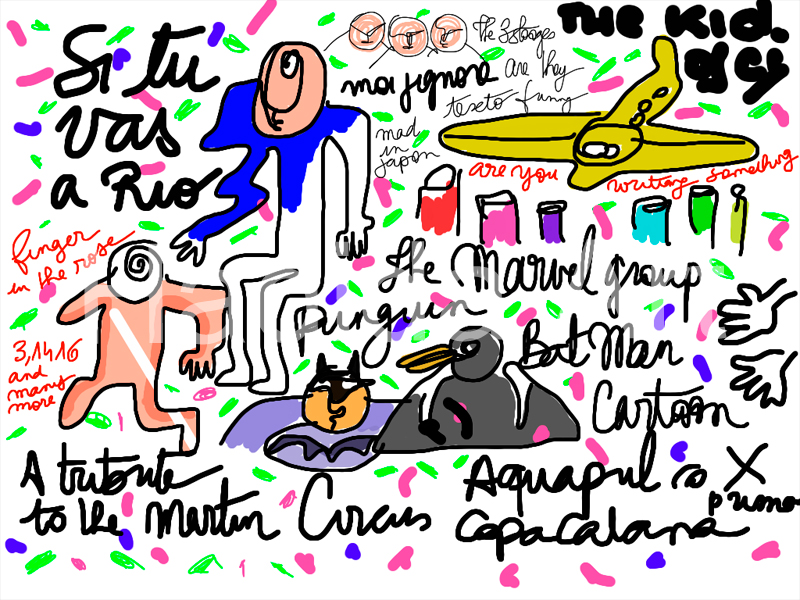 Si tu
vas
a Rio
the 3 stooges
are they
texto funny
mad
in
japon
THE KID.
are you
writing something
finger
in the rose
the Marvel group
Punguin
3,1416
and
many
more
Bat Man
Cartoon
A tribute
to the Martin Circus
Aquapul is X
Copacalana